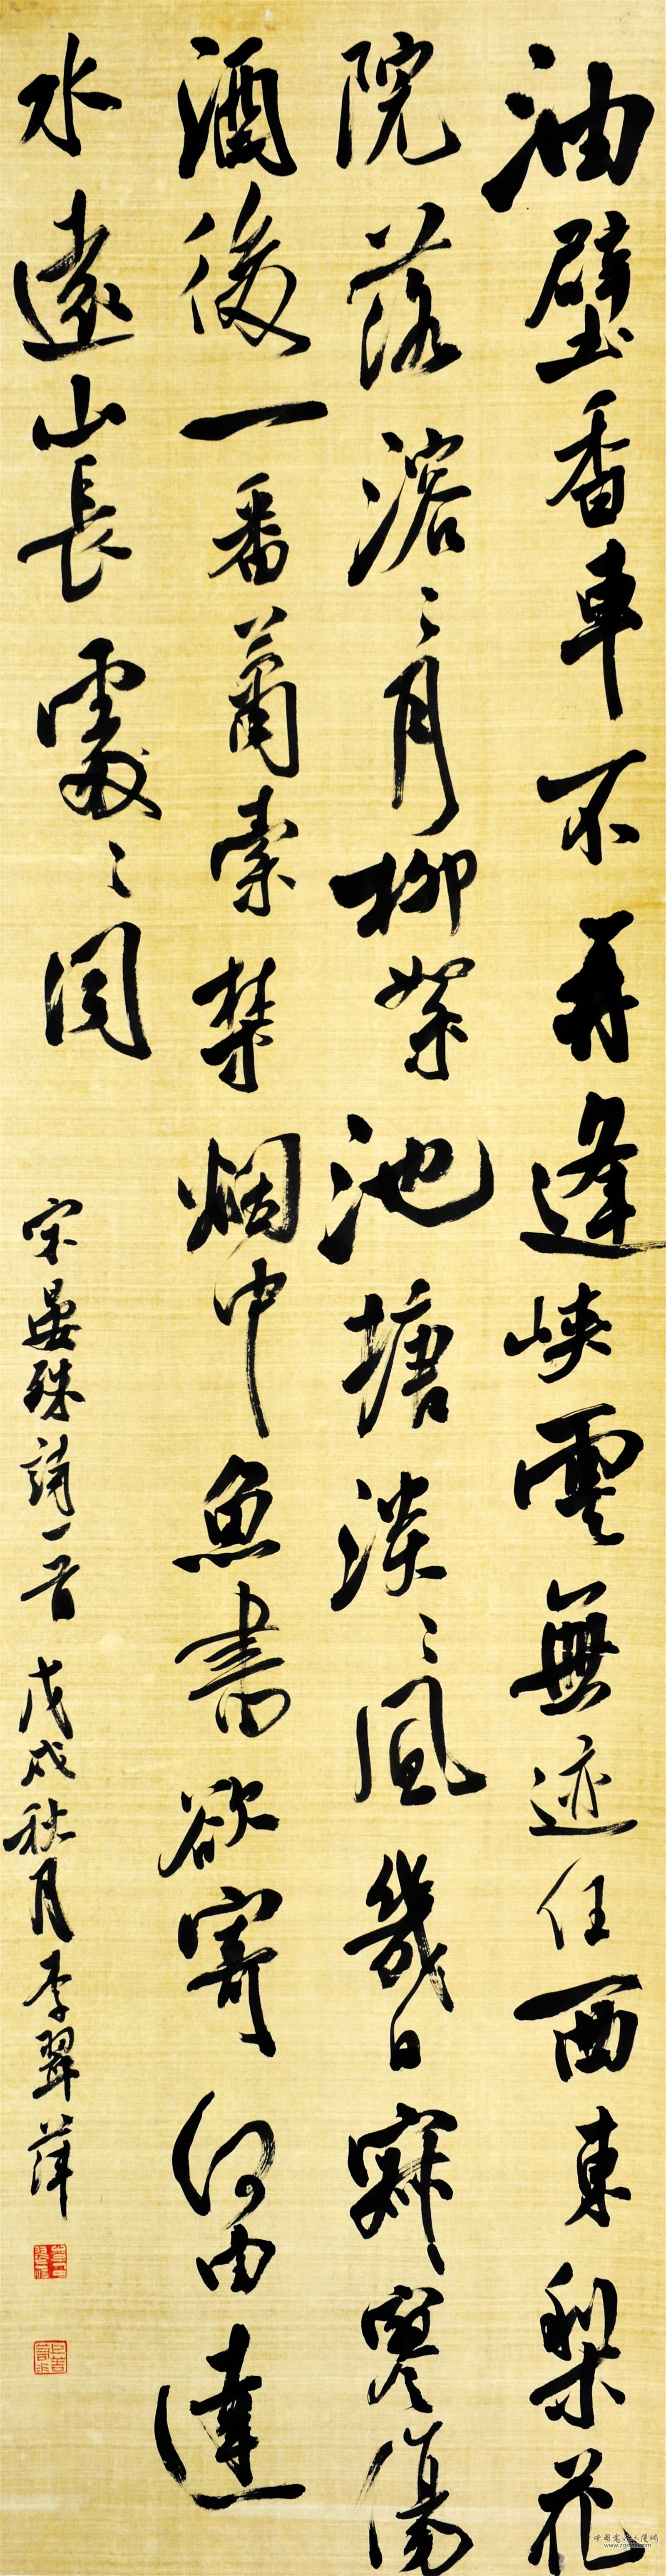 油壁香車不再逢峽雲無迹任西東梨花
院落溶〻月柳絮池塘淡〻風幾日寂寥傷
酒後一番蕭索禁烟中魚書欲寄何由達
水遠山長處〻同
宋晏殊詩一首 戊戌秋月李翠萍
中国书法人履网